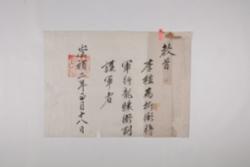 敎旨
李爲折衝將
軍行龍驤衛副
護軍者
崇禎年月十八日